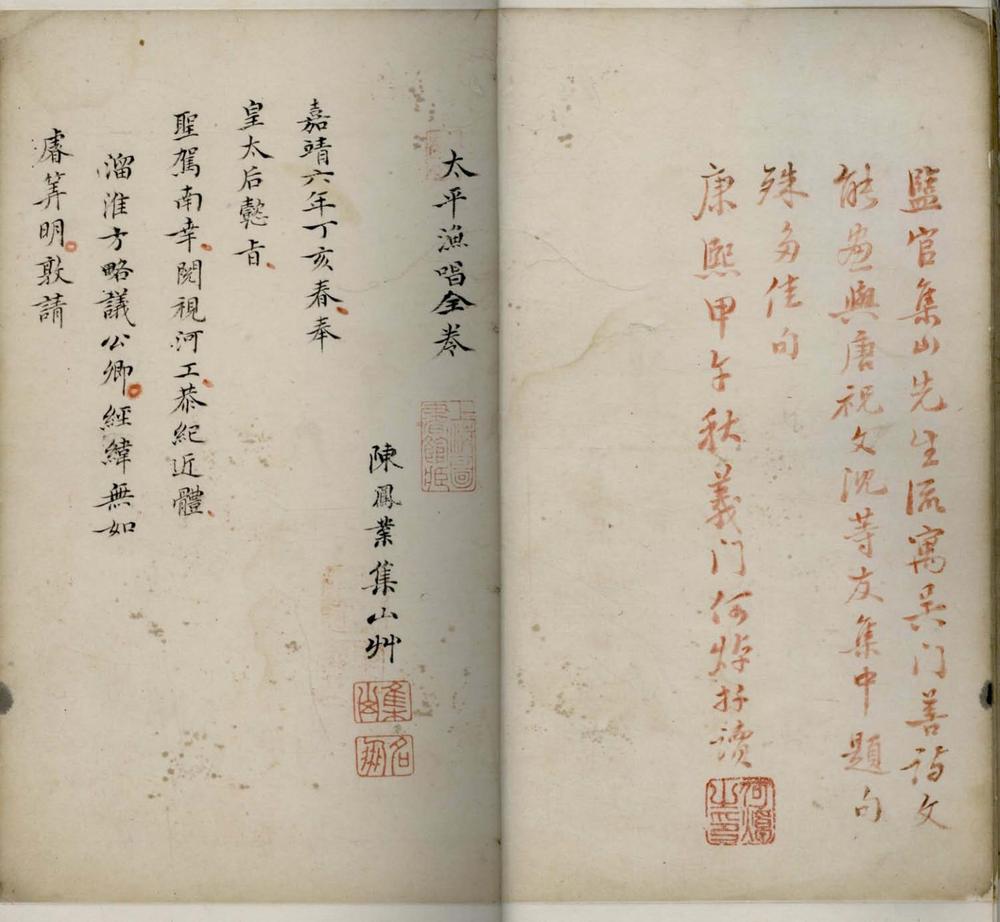 監官集山先生流寓吳门善詩文
能畫與唐祝文沈等友集中題句
殊多佳句
康熙甲午秋義门何焯拜讀
何焯之印
太平漁唱全卷
陳鳳業集山艸
集山
嘉靖六年丁亥春奉
皇太后懿旨
聖駕南幸閱視河工恭紀近體
溜淮方略議公卿經緯無如
睿筭明敦請